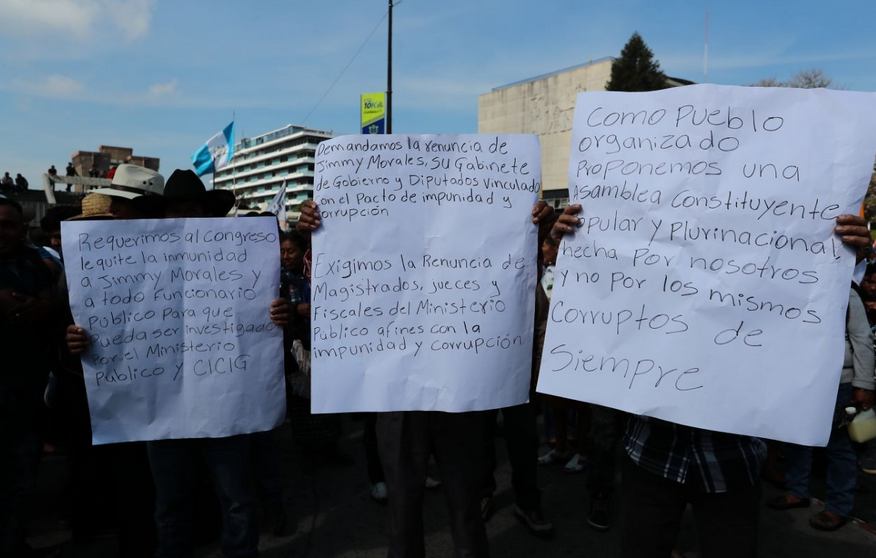 Requerimos al Congreso
le quite la inmunidad
a Jimmy Morales y
a todo Funcionario
Público para que
pueda ser investigado
por el Ministerio
Público y CICIG
Demandamos la renuncia de
Jimmy Morales, su Gabinete
de Gobierno y Diputados vinculado
con el Pacto de impunidad y
corrupción
Exigimos la Renuncia de
Magistrados, jueces y
Fiscales del Ministerio
Público afines con la
impunidad y corrupción
Como Pueblo
organizado
Proponemos una
Asamblea Constituyente
popular y Plurinacional
hecha por nosotros
y no por los mismos
Corruptos de
Siempre
10K